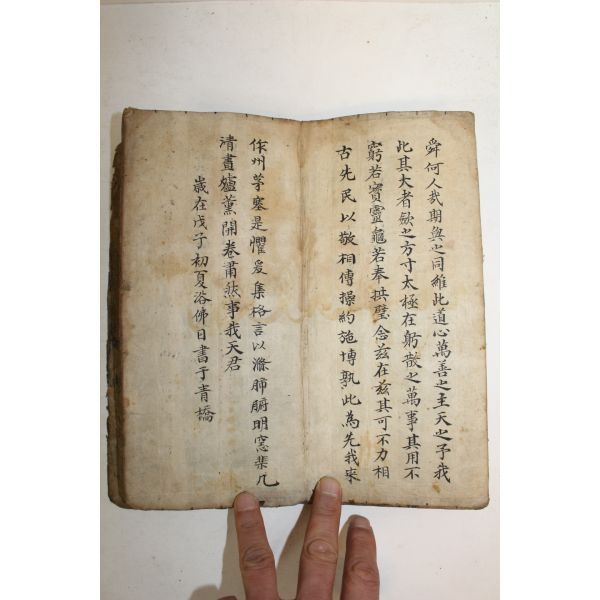 舜何人哉期與之同維此道心萬善之主天之予我
此其大者歛之方寸太極在躬散之萬事其用不
窮若寶靈龜若奉拱璧念兹在兹其可不力相
古先民以敬相傳操約施博孰此為先我來
作州茅塞是懼爰集格言以滌肺腑明窓棐几
清晝爐薰開卷肅然事我天君
歲在戊子初夏浴佛日書于青橋